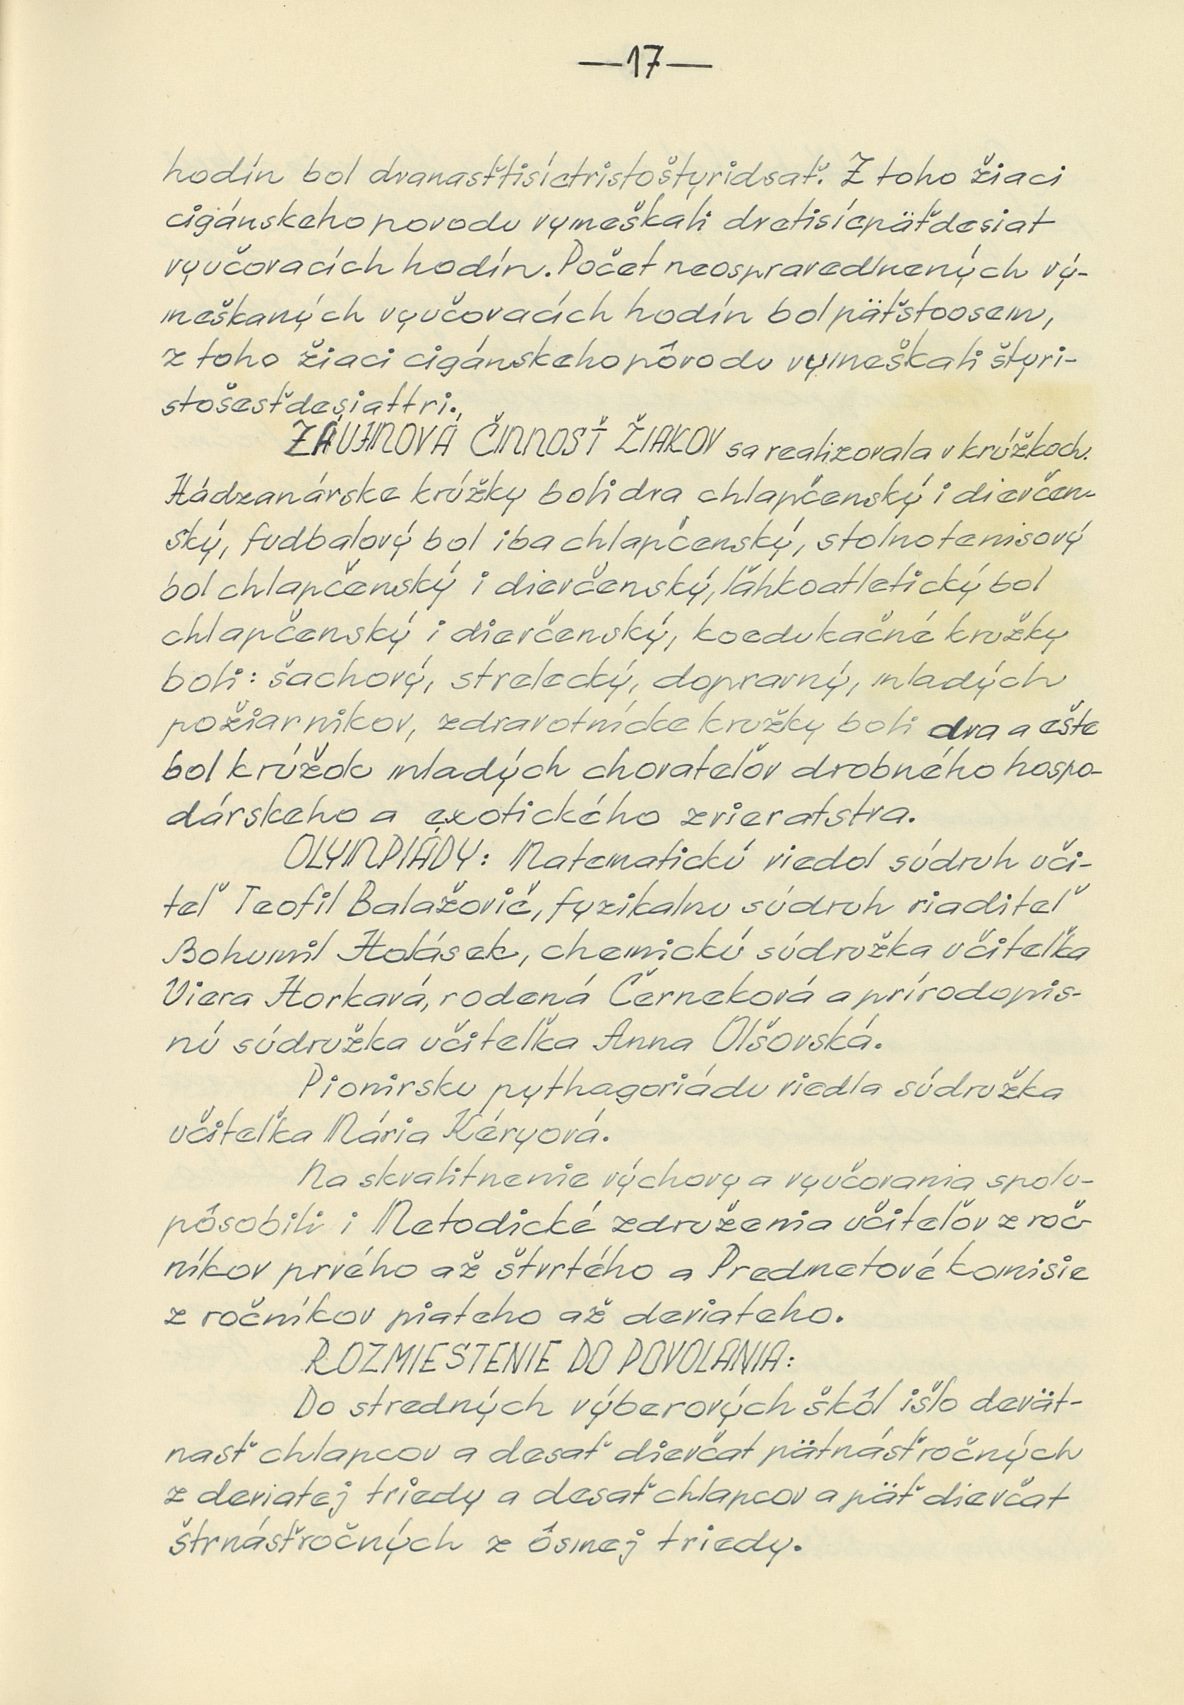 —17—
hodín bol dvanasťtisíctristoštyridsať. Z toho žiaci
cigánskeho povodu vymeškali dvetisícpäťdesiat
vyučovacích hodín. Počet neospravedlnených vý-
meškaných vyučovacích hodín bol päťstoosem,
z toho žiaci cigánskeho pôvodu vymeškali štyri-
stošesťdesiattri.
ZÁUJMOVÁ ČINNOSŤ ŽIAKOV sa realizovala v krúžkoch.
Hádzanárske krúžky boli dva chlapčenský i dievčen-
ský, fudbalový bol iba chlapčenský, stolnotenisový
bol chlapčenský i dievčenský, ľáhkoatletický bol
chlapčenský i dievčenský, koedukačné kružky
boli: šachový, strelecký, dopravný, mladých
požiarnikov, zdravotnícke kružky boli dva a ešte
bol krúžok mladých chovateľov drobného hospo-
dárskeho a exotického zvieratstva.
OLYMPIÁDY: Matematickú viedol súdruh uči-
teľ Teofil Balažovič, fyzikalnu súdruh riaditeľ
Bohumil Holásek, chemickú súdružka učiteľka
Viera Horkavá, rodená Černeková a prírodopis-
nú súdružka učiteľka Anna Olšovská.
Pionirsku pythagoriádu viedla súdružka
učiteľka Mária Kéryová.
Na skvalitnenie výchovy a vyučovania spolu-
pôsobili i Metodické združenia učiteľov z roč-
níkov prvého až štvrtého a Predmetové komisie
z ročníkov piateho až deviateho.
ROZMIESTENIE DO POVOLANIA:
Do stredných výberových škôl išlo devät-
nasť chlapcov a desať dievčat pätnásťročných
z deviatej triedy a desať chlapcov a päť dievčat
štrnásťročných z ôsmej triedy.